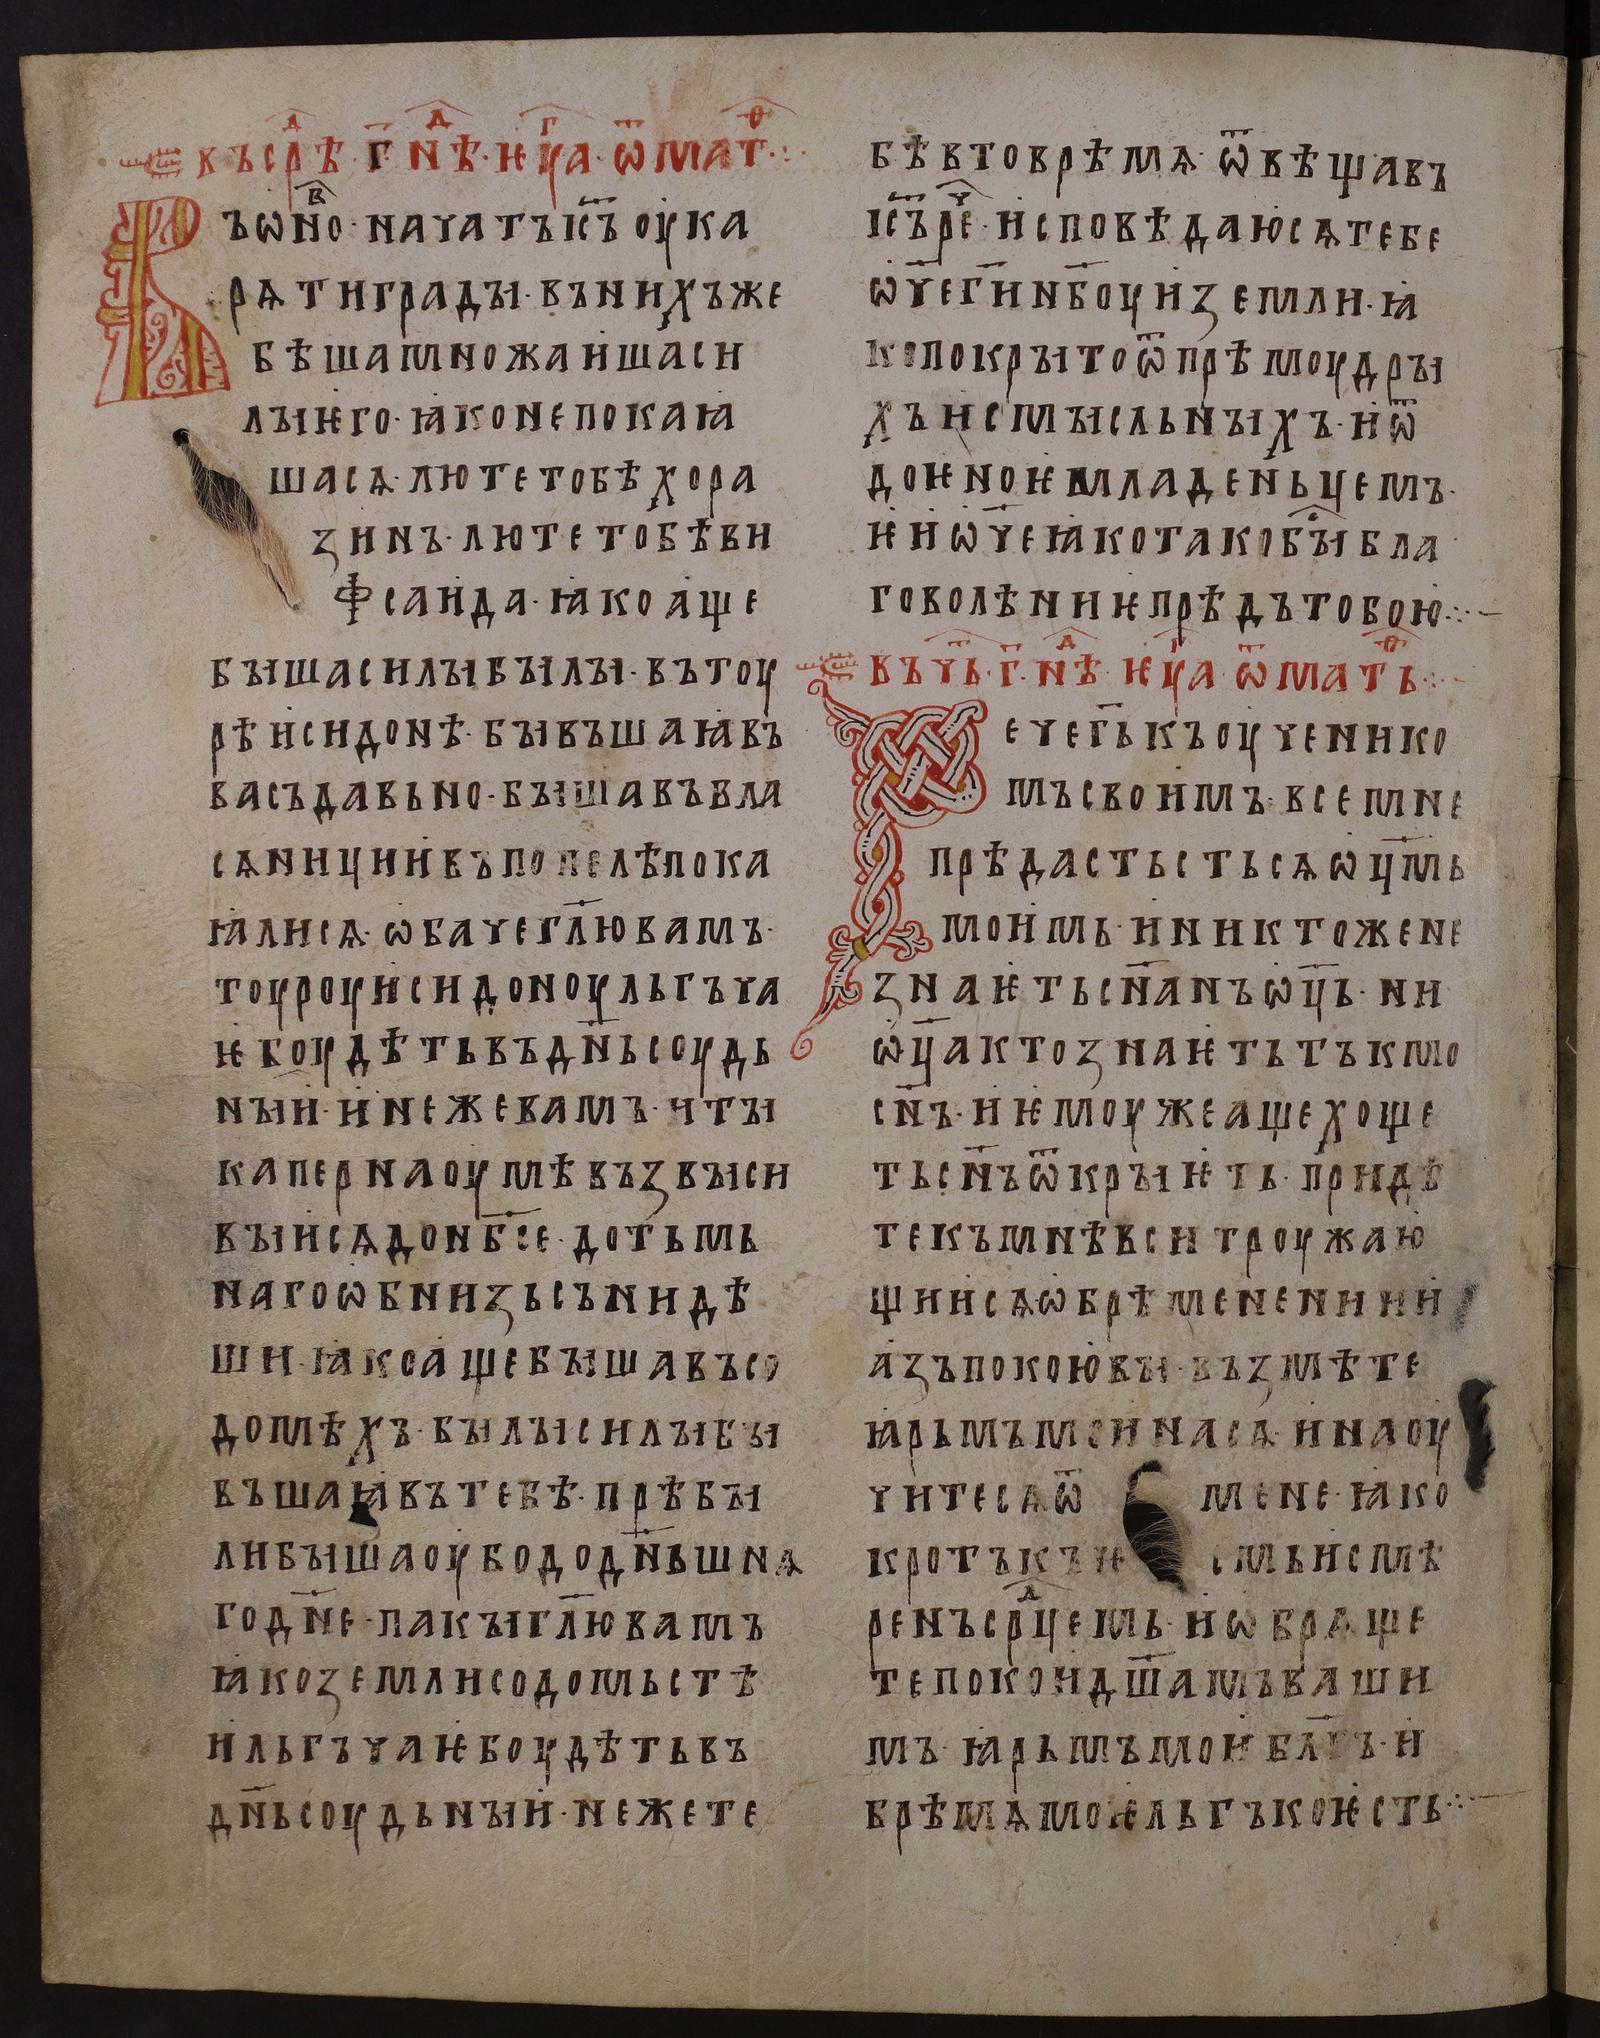 въсрⷣѣ·г҃·нⷣѣ·ѥⷢ҇ꙉа·ѿмаⷴт·:·
Въѡⷡ҇но·наѱатъі҃съѹка
рѧтиградꙑ·вънихъже
бѣшамножаишаси
лꙑѥго·ꙗконепокаꙗ
шасѧ·лютетобѣхора
зинъ·лютетобѣви
ѳсаида·ꙗкоаще
бꙑшасилꙑбꙑлꙑ·вътѹ
рѣисидонѣ·бꙑвъшаꙗвъ
васъдавьно·бꙑшавъвла
сѧнициивъпопелѣпока
ꙗлисѧ·ѡбачегл҃ювамъ·
тѹрѹисидонѹльгъча
ѥбѹдѣтьвъдн҃ьсѹдь
нꙑи·инежевамъ·итꙑ
капернаѹмѣвъзвꙑси
вꙑисѧдонб҃се·дотьмь
нагоѡбнизьсънидѣ
ши·ꙗкоащебꙑшавъсо
домѣхъ·бꙑлꙑсилꙑбꙑ
въшаꙗвътебѣ·прѣбꙑ
либꙑшаѹбододн҃ьшнѧ
годн҃е·пакꙑгл҃ювамъ
ꙗкоземлисодомьстѣ
ильгъчаѥбѹдѣтьвъ
дн҃ьсѹдьнꙑи·нежете
бѣвтоврѣмѧ·ѿвѣщавъ
іс҃ъреⷱ·исповѣдаюсѧтебе
ѡч҃ег҃инб҃ѹиземли·ꙗ
копокрꙑтоѿпрѣмѹдрꙑ
хъисмꙑсльнꙑхъ·иѿ
доиѥноѥмладеньцемъ·
ѥиѡч҃еꙗкотакобꙑⷭбла
говолѣниѥпрѣдътобою·:·
въчⷮь·г҃·нⷣѣ·ѥⷢ҇ꙉа·ѿмаⷴтъ·:·
Речег҃ькъѹченико
мъсвоимъ·всемне
прѣдастьстьсѧѡц҃мь
моимь·иниктожене
знаѥтьсн҃анъѡц҃ь·ни
ѡц҃актознаѥтьтъкмо
сн҃ъ·иѥмѹжеащехоще
тьсн҃ъѿкрꙑѥть·придѣ
текъмнѣвситрѹжаю
щиисѧѡбрѣмененнии
азъпокоювꙑ·възмѣте
ꙗрьмъмоинасѧ·инаѹ
читесѧѿмене·ꙗко
кротъкъѥсмьисмѣ
ренъсрⷣцемь·иѡбрѧще
тепокоидш҃амъваши
мъ·ꙗрьмъмоибл҃гъ·и
брѣмѧмоѥльгъкоѥсть·:·